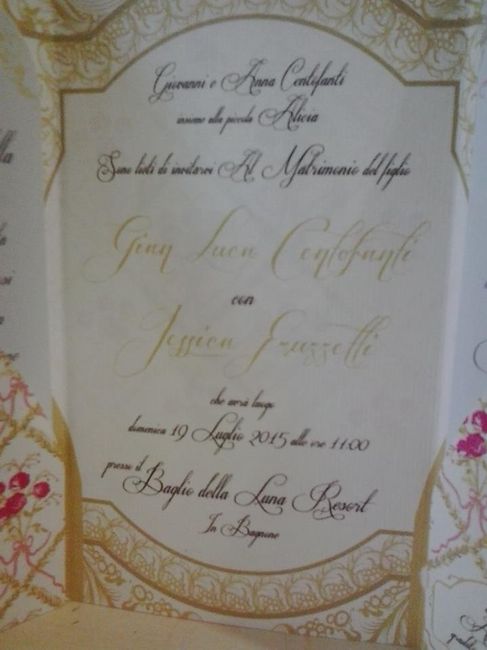 Giovanni e Anna Centofanti
insieme alla piccola Alicia
Sono lieti di invitarvi Al Matrimonio del figlio
Gian Luca Centofanti
con
Jessica
che avrà luogo
domenica 19 Luglio 2015 alle ore 11:00
presso il
Baglio della Luna Resort
In Bagnone